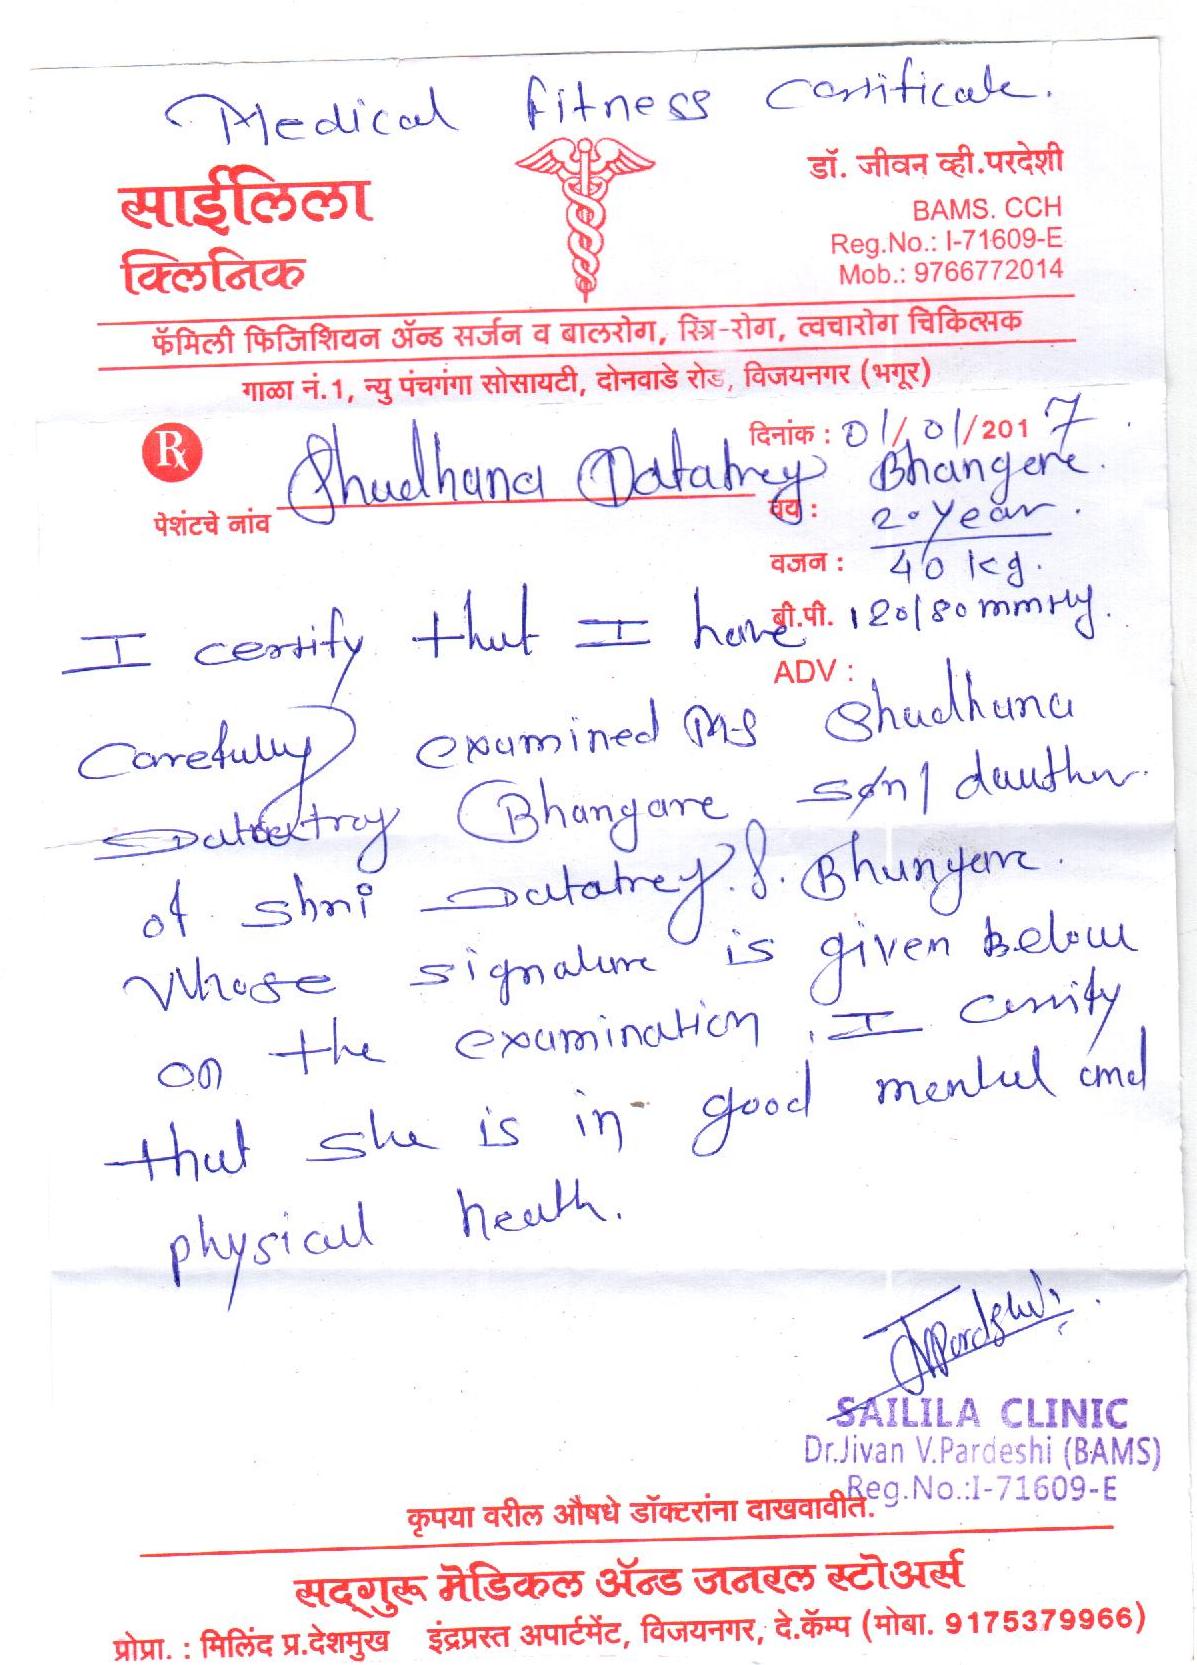 Medical fitness certificate.
साईलिला
क्लिनिक
डॉ. जीवन व्ही.परदेशी
BAMS. CCH
Reg.No.: I-71609-E
Mob.: 9766772014
फॅमिली फिजिशियन ॲन्ड सर्जन व बालरोग, स्त्रि-रोग, त्वचारोग चिकित्सक
गाळा नं.1, न्यु पंचगंगा सोसायटी, दोनवाडे रोड, विजयनगर (भगूर)
Rx
दिनांक : 01/01/2017
पेशंटचे नांव Shudhana Datatrey Bhangere.
वय : 20 Year.
वजन : 40 kg.
बी.पी. 120/80 mmHg.
ADV :
I certify that I have
Carefully examined Ms Shudhana
Datatray Bhangare son/ dauther
of Shri Datatrey. S. Bhangare.
Whose signature is given below
on the examination. I certify
that she is in good mental and
physical health.
JVPardeshi
SAILILA CLINIC
Dr.Jivan V.Pardeshi (BAMS)
Reg.No.:I-71609-E
कृपया वरील औषधे डॉक्टरांना दाखवावीत.
सद्‌गुरू मेडिकल ॲन्ड जनरल स्टोअर्स
प्रोप्रा. : मिलिंद प्र.देशमुख इंद्रप्रस्त अपार्टमेंट, विजयनगर, दे.कॅम्प (मोबा. 9175379966)